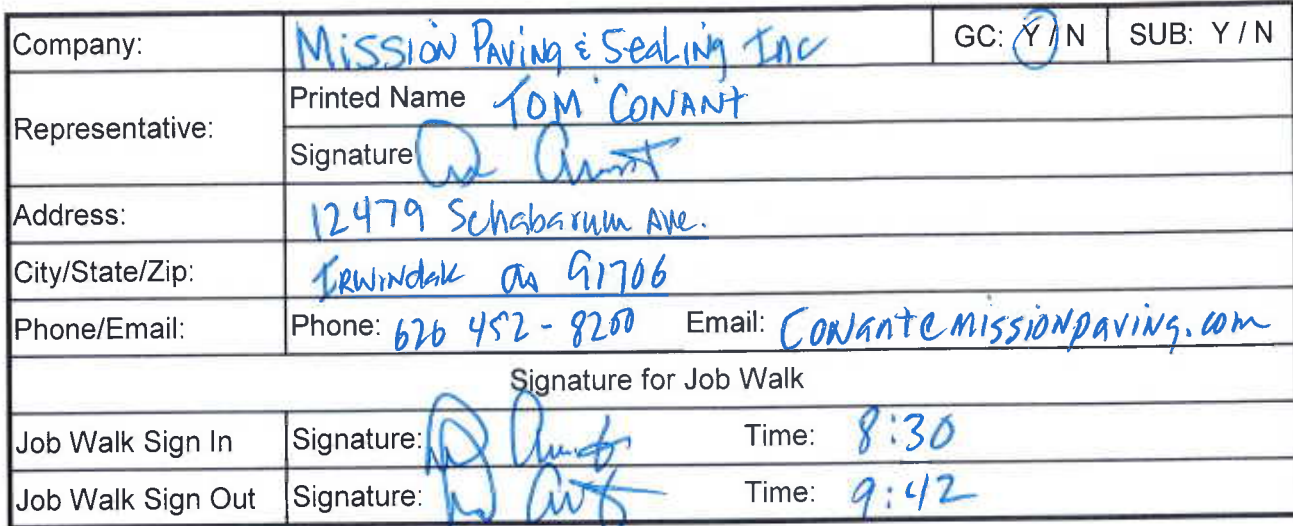 Company: Mission Paving & Sealing Inc GC: Y / N SUB: Y / N
Representative:
Printed Name Tom Conant
Signature
Address: 12479 Schabarum Ave.
City/State/Zip: Irwindale CA 91706
Phone/Email: Phone: 626 452-8200 Email: Conant@missionpaving.com
Signature for Job Walk
Job Walk Sign In Signature: Time: 8:30
Job Walk Sign Out Signature: Time: 9:42